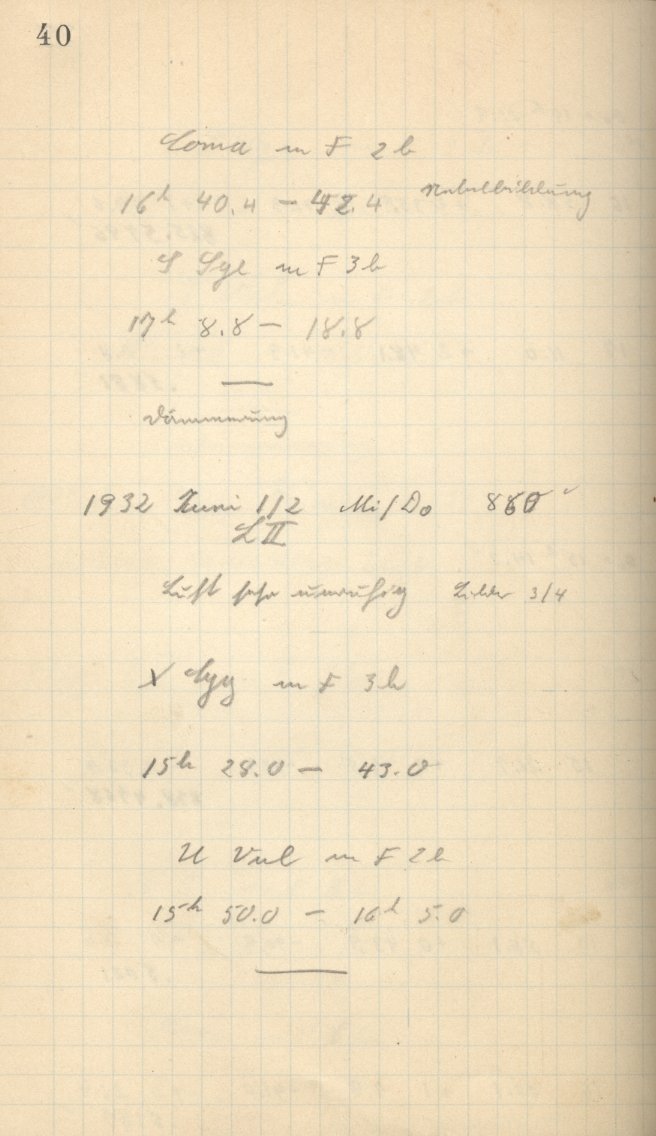 40
Coma m F 2 b
16h 40.4 – 42.4 Nebelbildung
S Sge m F 3 b
17h 8.8 – 18.8
Dämmerung
1932 Juni 1/2 Mi/Do 860
L II
Luft sehr unruhig Bilder 3/4
X Cyg m F 3 b
15h 28.0 – 43.0
U Vul m F 2 b
15h 50.0 – 16h 5.0